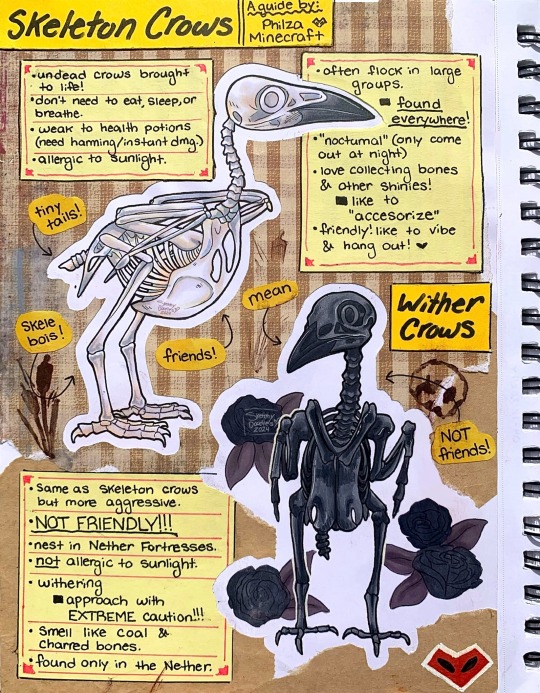 Skeleton Crows
A guide by:
Philza
Minecraft
• undead crows brought
to life!
• don't need to eat, sleep, or
breathe.
• weak to health potions
(need harming/instant dmg.)
• allergic to sunlight.
• often flock in large
groups.
■ found
everywhere!
• "nocturnal" (only come
out at night)
• love collecting bones
& other shinies!
■ like to
"accesorize"
• friendly! like to vibe
& hang out! ♥
tiny
tails!
skele
bois!
friends!
mean
Wither
Crows
NOT
friends!
• Same as skeleton crows
but more aggressive.
• NOT FRIENDLY!!!
• nest in Nether Fortresses.
• not allergic to sunlight.
• withering
■ approach with
EXTREME caution!!!
• Smell like coal &
charred bones.
• found only in the Nether.
2024